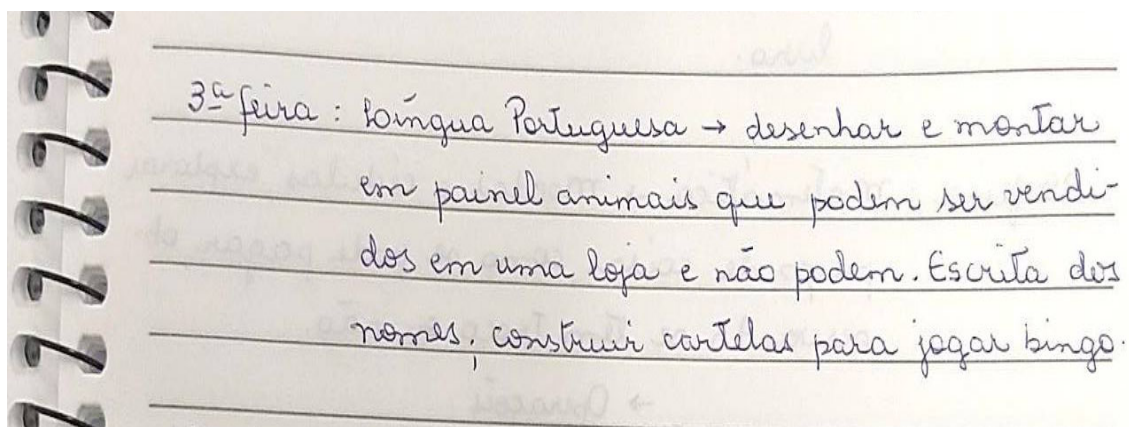 3ª feira: Língua Portuguesa → desenhar e montar
em painel animais que podem ser vendi-
dos em uma loja e não podem. Escrita dos
nomes; construir cartelas para jogar bingo.